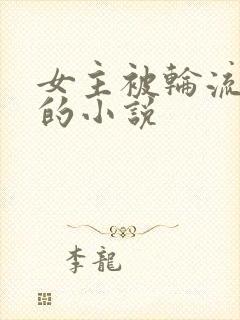 女主被輪流
的小說
李龍